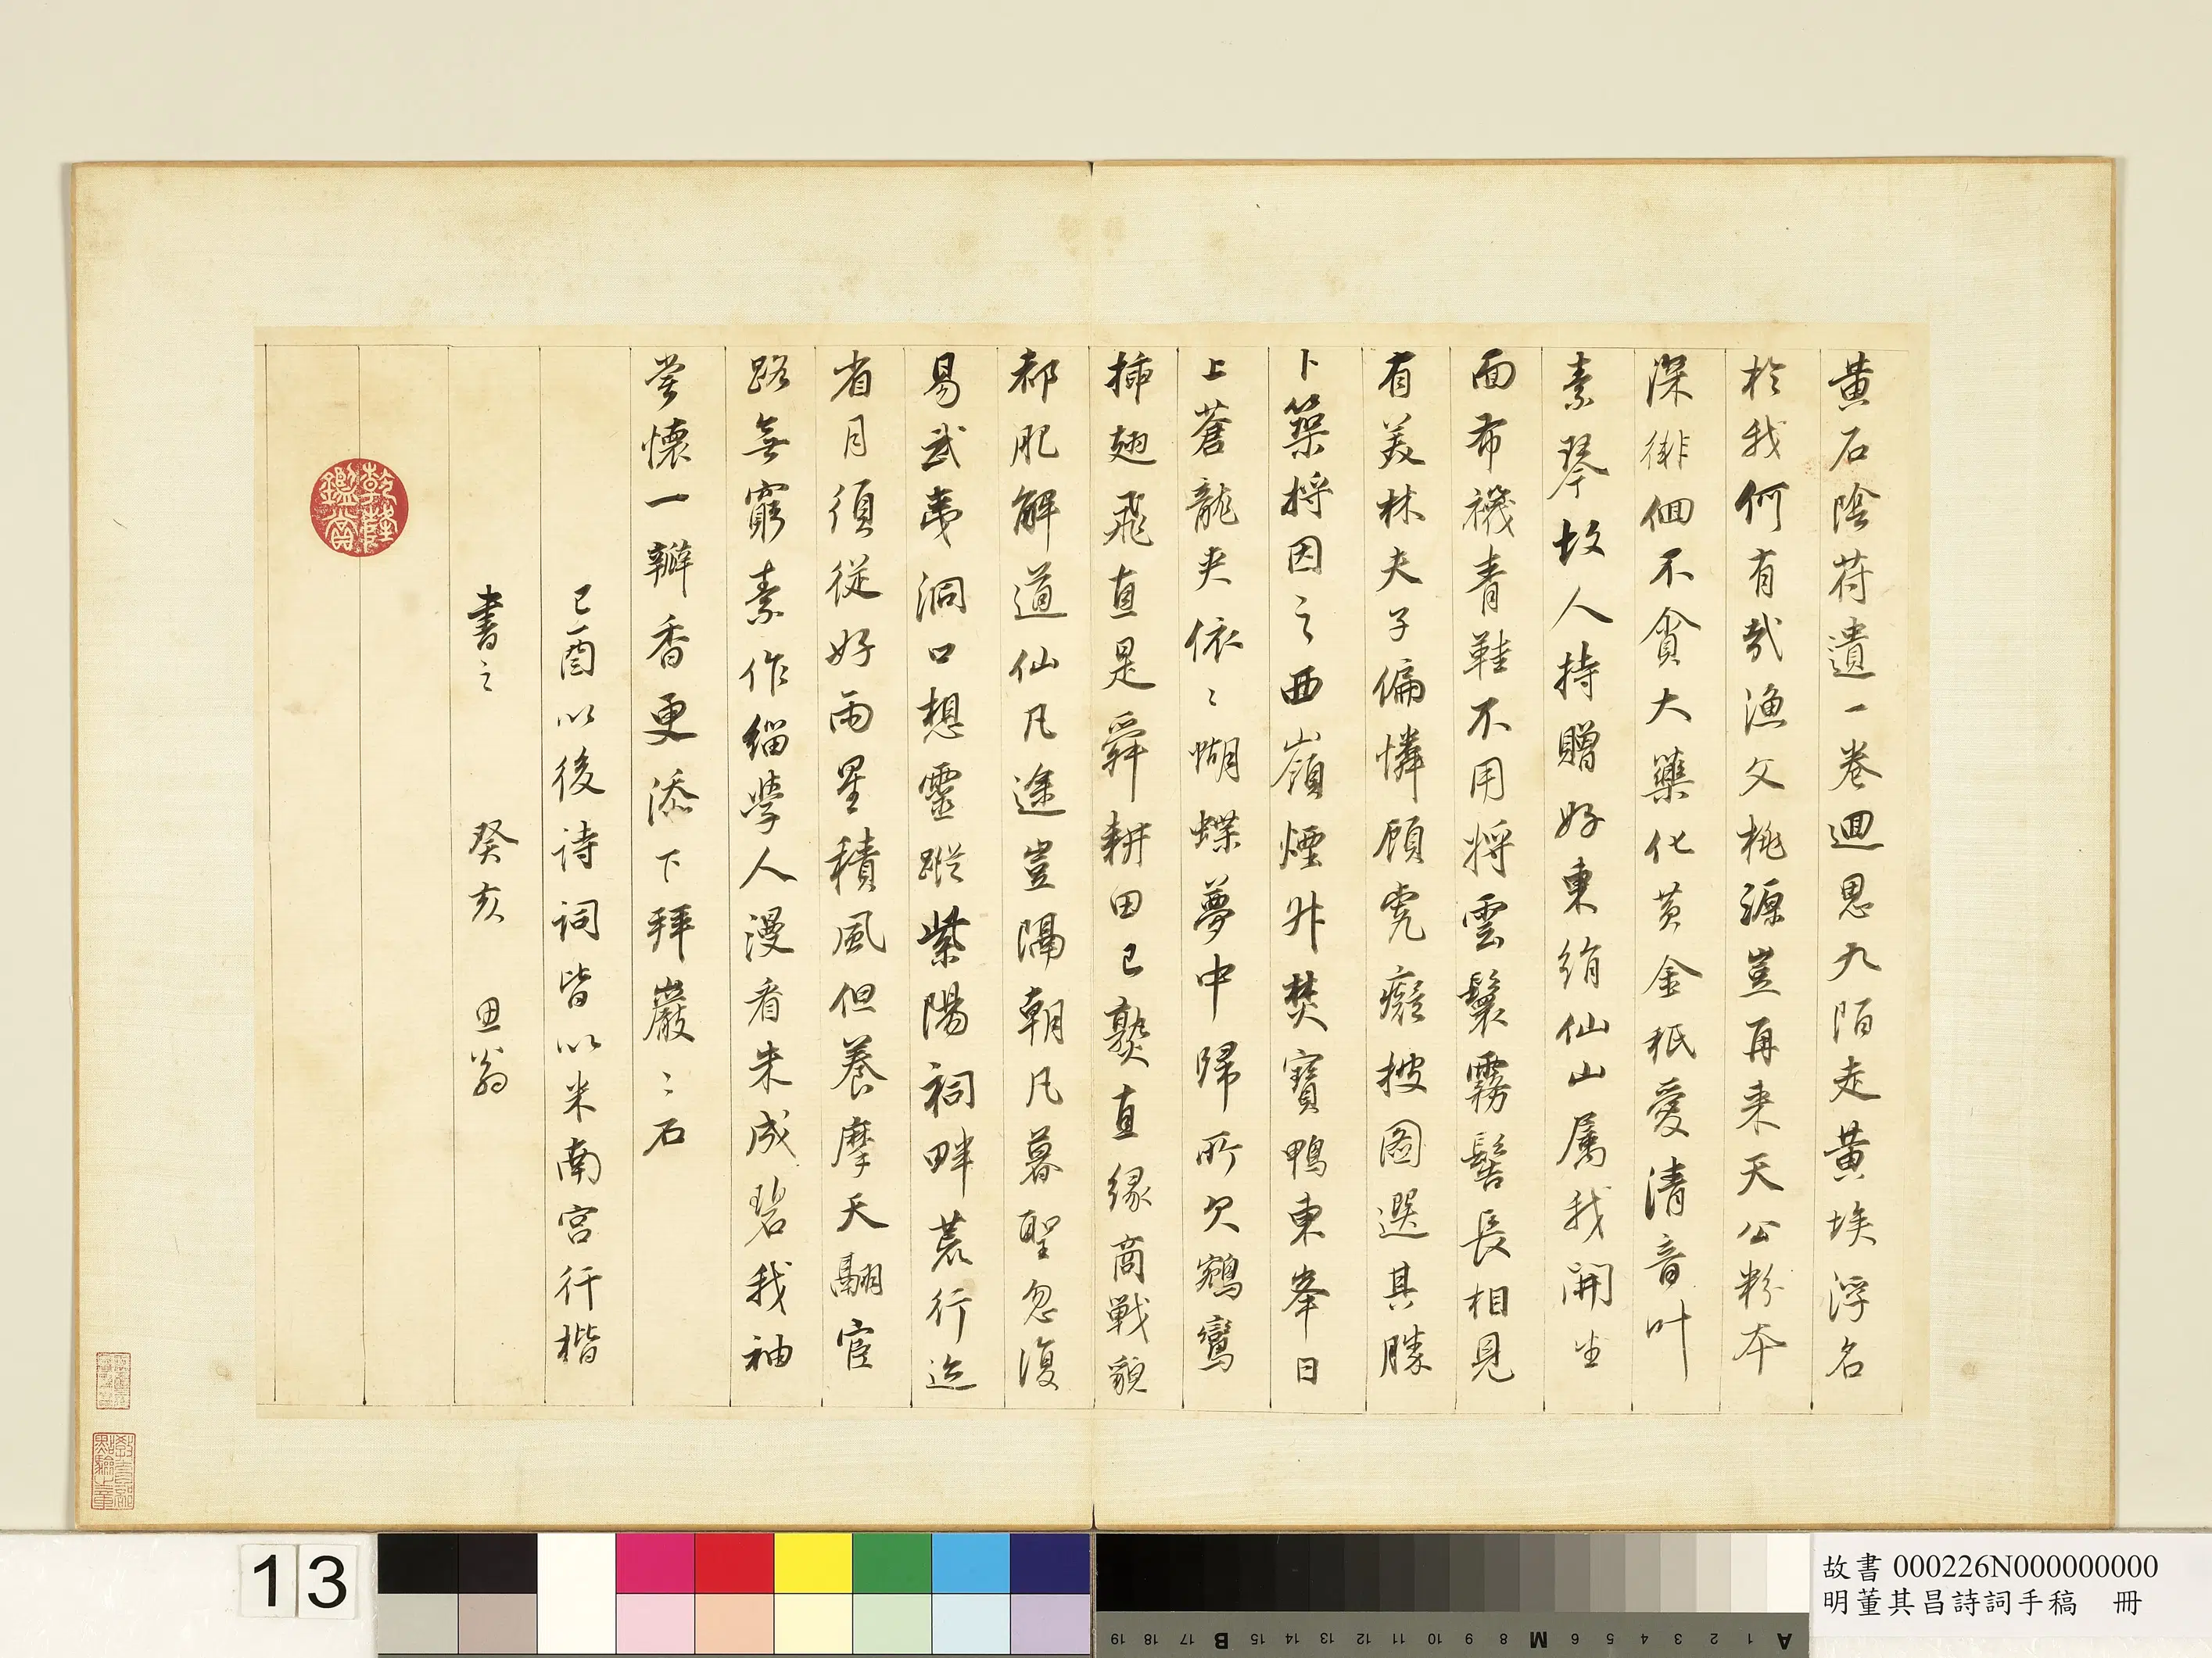 黄石陰符遺一卷廻思九陌走黄埃浮名
於我何有哉漁父桃源豈再来天公粉本
深徘徊不貪大藥化黄金秖愛清音叶
素琴故人持贈好東絹仙山屬我開生
面布襪青鞋不用将雲鬟霧髻長相見
有美林夫子偏憐顧虎癡披圖選其勝
卜築将因之西嶺煙外焚寶鴨東峯日
上蒼龍夾依〻蝴蝶夢中歸所欠鵷鸞
插翅飛直是舜耕田已爇直緣商戰貌
都肥解道仙凡途豈隔朝凡暮聖忽復
易武夷洞口想靈蹤紫陽祠畔荒行迹
省月須從好雨星積風但養摩天翮宦
路無窮素作緇學人漫看朱成碧我袖
嘗懷一瓣香更添下拜巖〻石
己酉以後詩詞皆以米南宫行楷
書之 癸亥 思翁
乾隆鑑賞
13
故書 000226N000000000
明董其昌詩詞手稿 冊
A 1 2 3 4 5 6 M 8 9 10 11 12 13 14 15 B 17 18 19